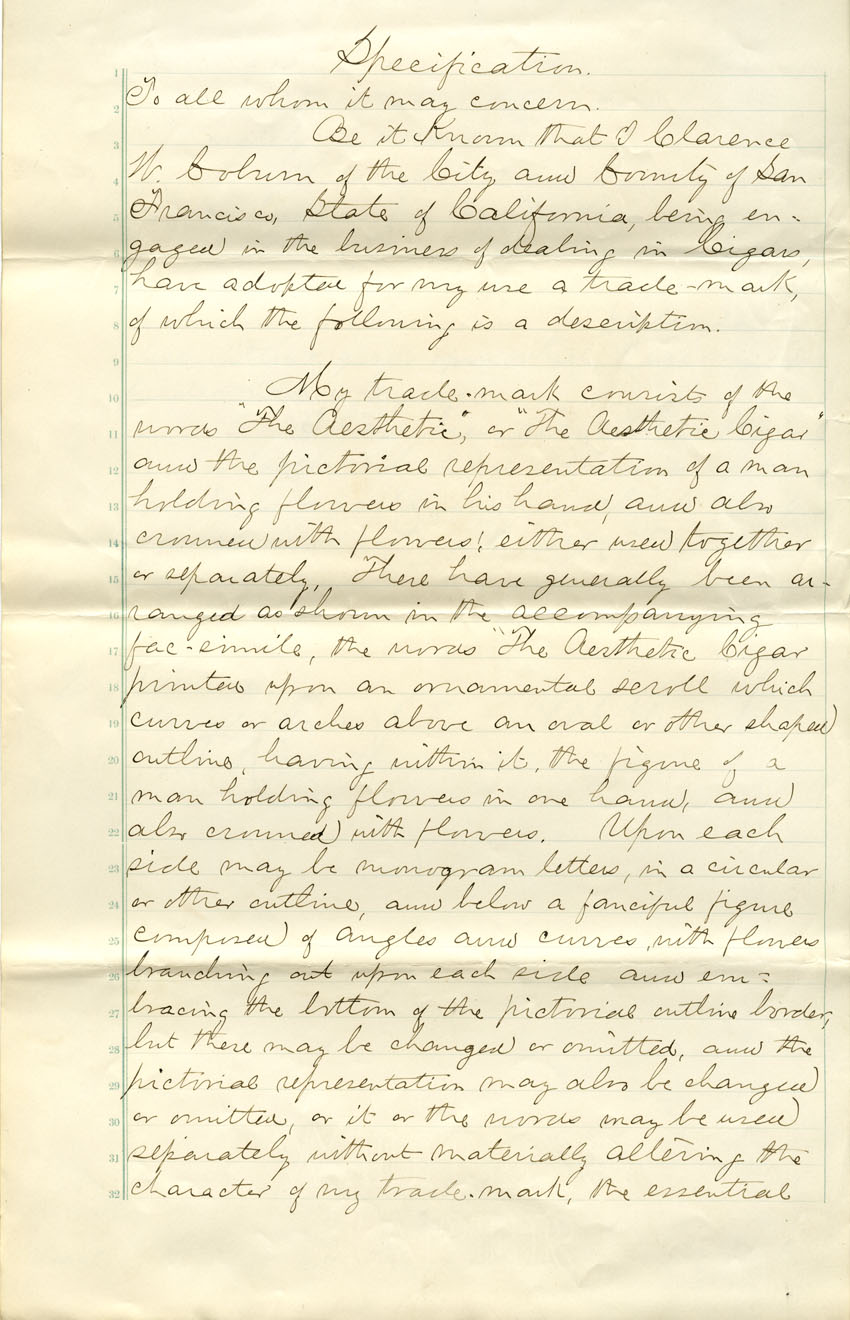 Specification.
1
To all whom it may concern.
2
Be it Known that I Clarence
3
W. Coburn of the City and County of San
4
Francisco, State of California, being en-
5
gaged in the business of dealing in Cigars,
6
have adopted for my use a trade-mark,
7
of which the following is a description.
8
9
My trade-mark consists of the
10
words "The Aesthetic", or "The Aesthetic Cigar"
11
and the pictorial representation of a man
12
holding flowers in his hand, and also
13
crowned with flowers; either used together
14
or separately, These have generally been ar-
15
ranged as shown in the accompanying
16
fac-simile, the words "The Aesthetic Cigar
17
printed upon an ornamental scroll which
18
curves or arches above an oval or other shaped
19
outline, having within it, the figure of a
20
man holding flowers in one hand, and
21
also crowned with flowers. Upon each
22
side may be monogram letters, in a circular
23
or other outline, and below a fanciful figure
24
composed of angles and curves, with flowers
25
branching out upon each side and em-
26
bracing the bottom of the pictorial outline border,
27
but these may be changed or omitted, and the
28
pictorial representation may also be changed
29
or omitted, or it or the words may be used
30
separately without materially altering the
31
character of my trade-mark, the essential
32